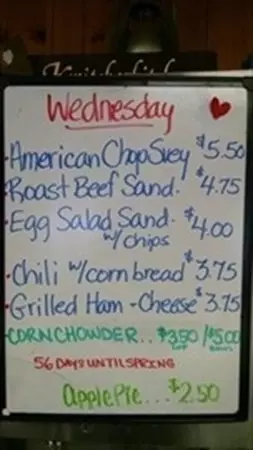 Wednesday
American Chop Suey $5.50
Roast Beef Sand. $4.75
Egg Salad Sand. $4.00
w/ chips
Chili w/corn bread $3.75
Grilled Ham - Cheese $3.75
CORN CHOWDER.. $3.50/$5.00
56 DAYS UNTIL SPRING
apple Pie... $2.50